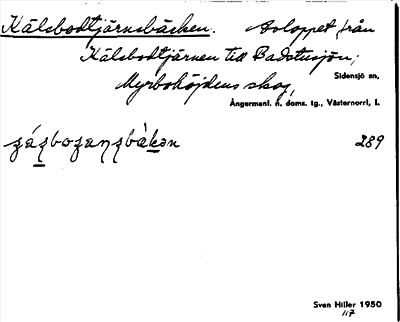 Kälsbodtjärnsbäcken. Avloppet från
Kälsbodtjärnen till Badstusjön;
Myrbohöjdens skog,
Sidensjö sn,
Ångermanl. n. doms. tg., Västernorrl, l.
289
Sven Hiller 1950
117